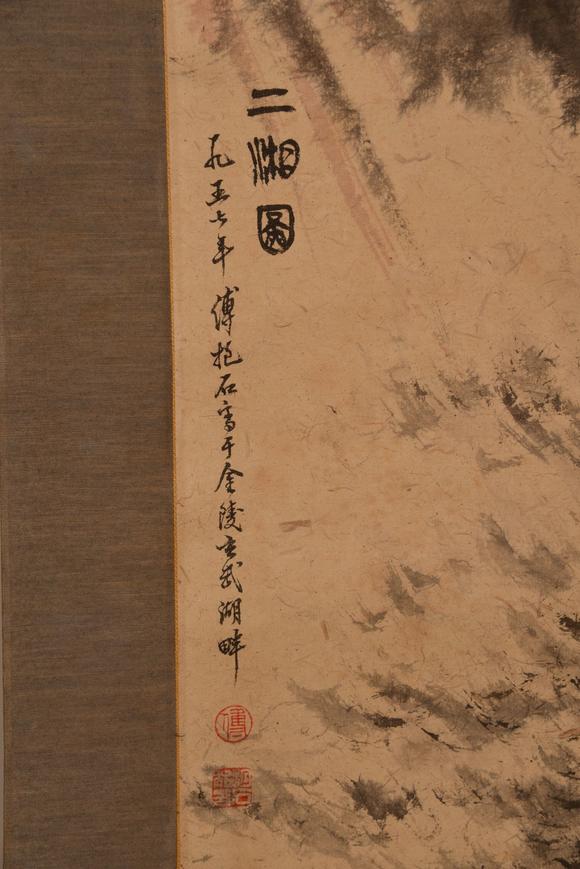 二湘圖
一九五七年 傅抱石寫于金陵玄武湖畔
傅